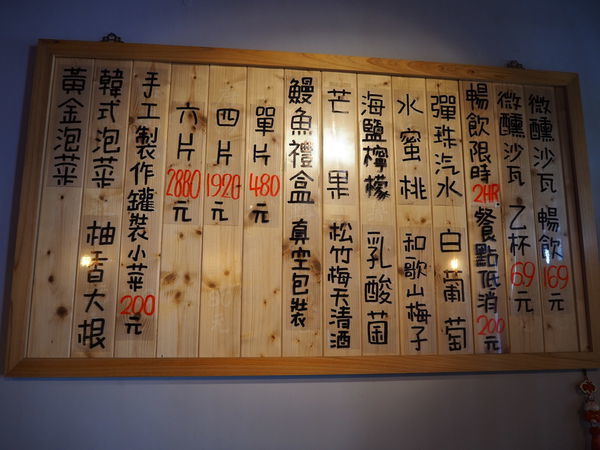 微醺沙瓦 暢飲169元
微醺沙瓦 乙杯69元
暢飲限時2HR餐點低消200元
彈珠汽水 白葡萄
水蜜桃 和歌山梅子
海鹽檸檬 乳酸菌
芒果 松竹梅天清酒
鰻魚禮盒 真空包裝
單片480元
四片1920元
六片2880元
手工製作罐裝小菜200元
韓式泡菜 柚香大根
黃金泡菜